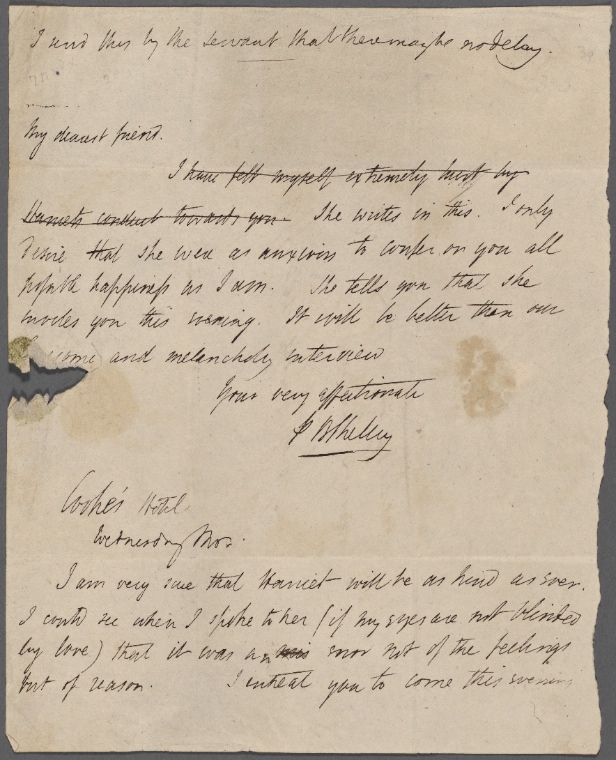 I send this by the servant that there may be no delay.
My dearest friend.
I have felt myself extremely hurt by
Harriets conduct towards you. She writes in this. I only
desire that she were as anxious to confer on you all
possible happiness as I am. She tells you that she
invites you this evening. It will be better than our
and melancholy interview
Your very affectionate
P B Shelley
Cooke's Hotel
Wednesday Mor.
I am very sure that Harriet will be as kind as ever.
I could see when I spoke to her (if my eyes are not blinded
by love) that it was an error not of the feelings
but of reason. I entreat you to come this evening